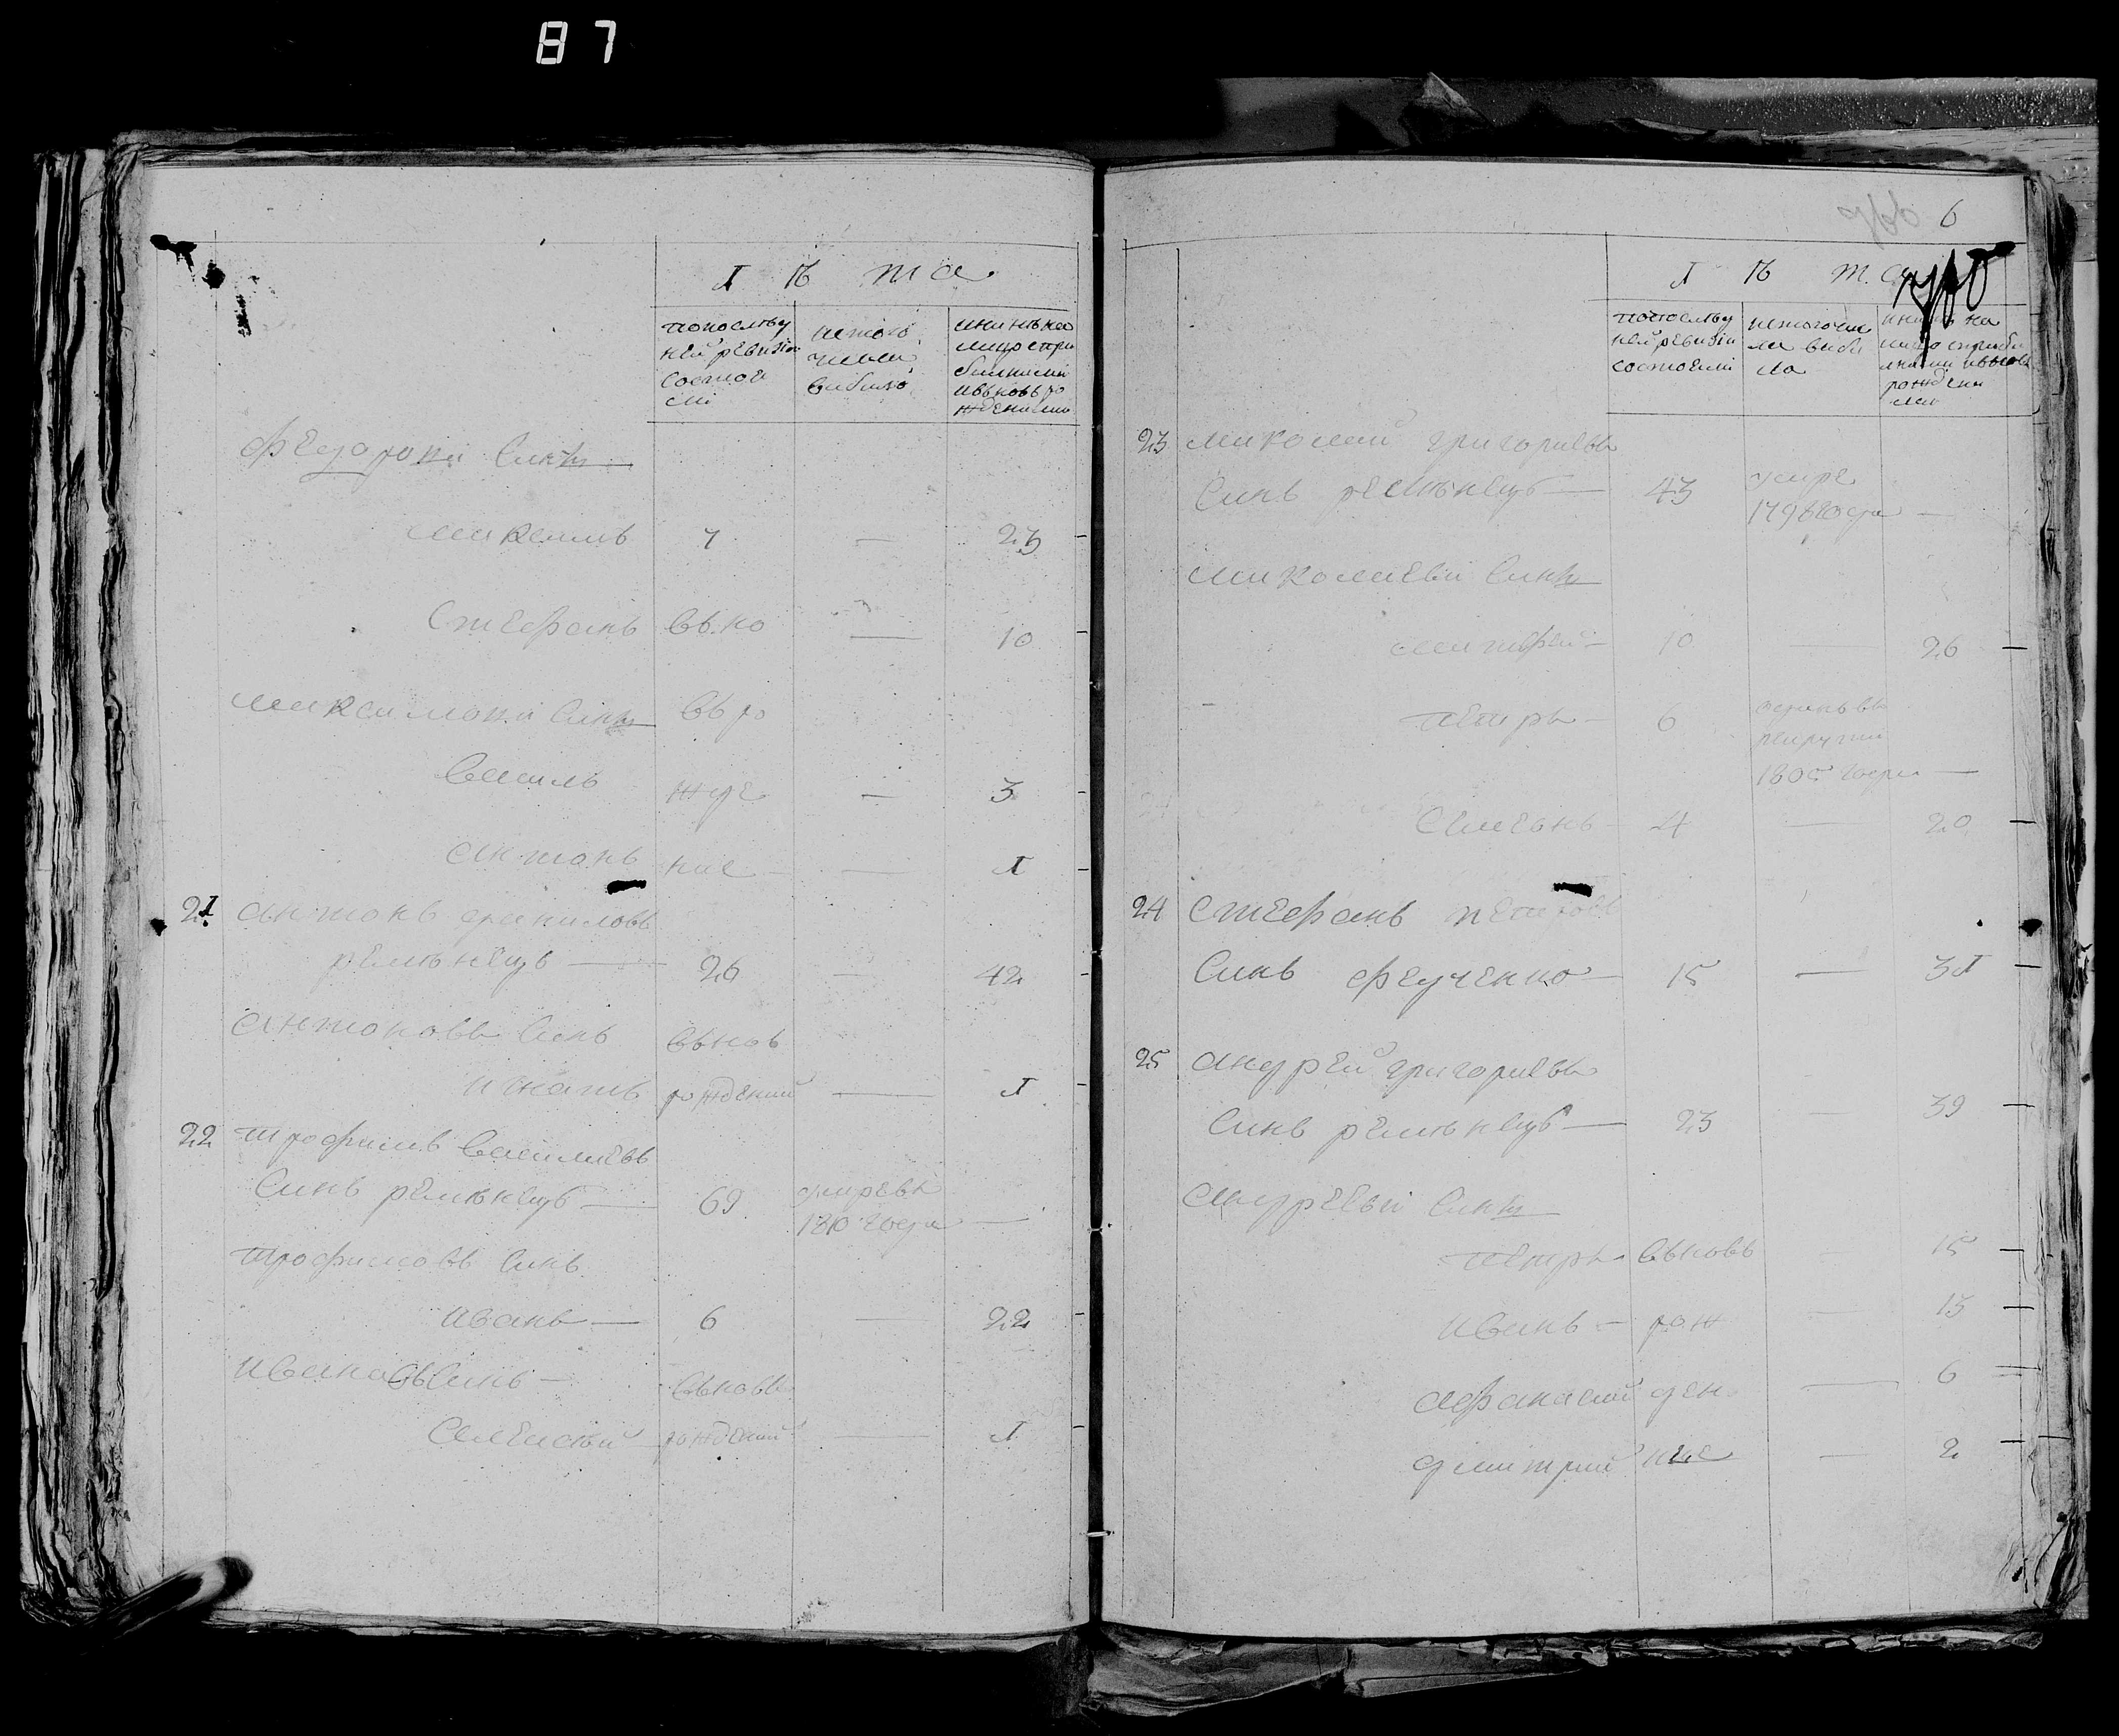 87
Л Ѣ та
попослѣду
ней ревизіи
состоя
ли
истого
числа
выбыло
инынѣ на
лицо спри
былыми
ивьновь ро
жденными
Федоровы Сины
максимъ 7 — 23
Стефанъ вь но — 10
максимовы Сины вь ро
василь жде — 3
антонъ ние — 1
21 антонъ даниловъ
ремѣнецъ — 26 — 42
антоновъ Синъ вьнов
игнатъ рождений — 1
22 трофимъ василиевъ
Синъ ремѣнецъ — 69 умре вь
1810 года —
трофимовъ Синъ
иванъ — 6 — 22
ивановъ Синъ — вьновь
Алексѣй рождений — 1
766 6
Л Ѣ та
попослѣду
ней ревизіи
состояли
истого чис
ла выбы
ло
инынѣ на
лицо спри бы
лыми ивьновь
рождени
ми
23 миколай григориевъ
Синъ ремѣнецъ — 43 умре
1798 года —
миколаеви Сины
матфей — 10 — 26
петръ — 6 отдань въ
рекруты
1805 года —
Семенъ — 4 — 20
24 Стефанъ петровъ
Синъ федченко — 15 — 31
25 андрей григориевъ
Синъ ремѣнецъ — 23 — 39
андреевы Сины
петръ — вьновь — 15
иванъ — рож — 13
афанасий ден — 6
дмитрий ние — 2